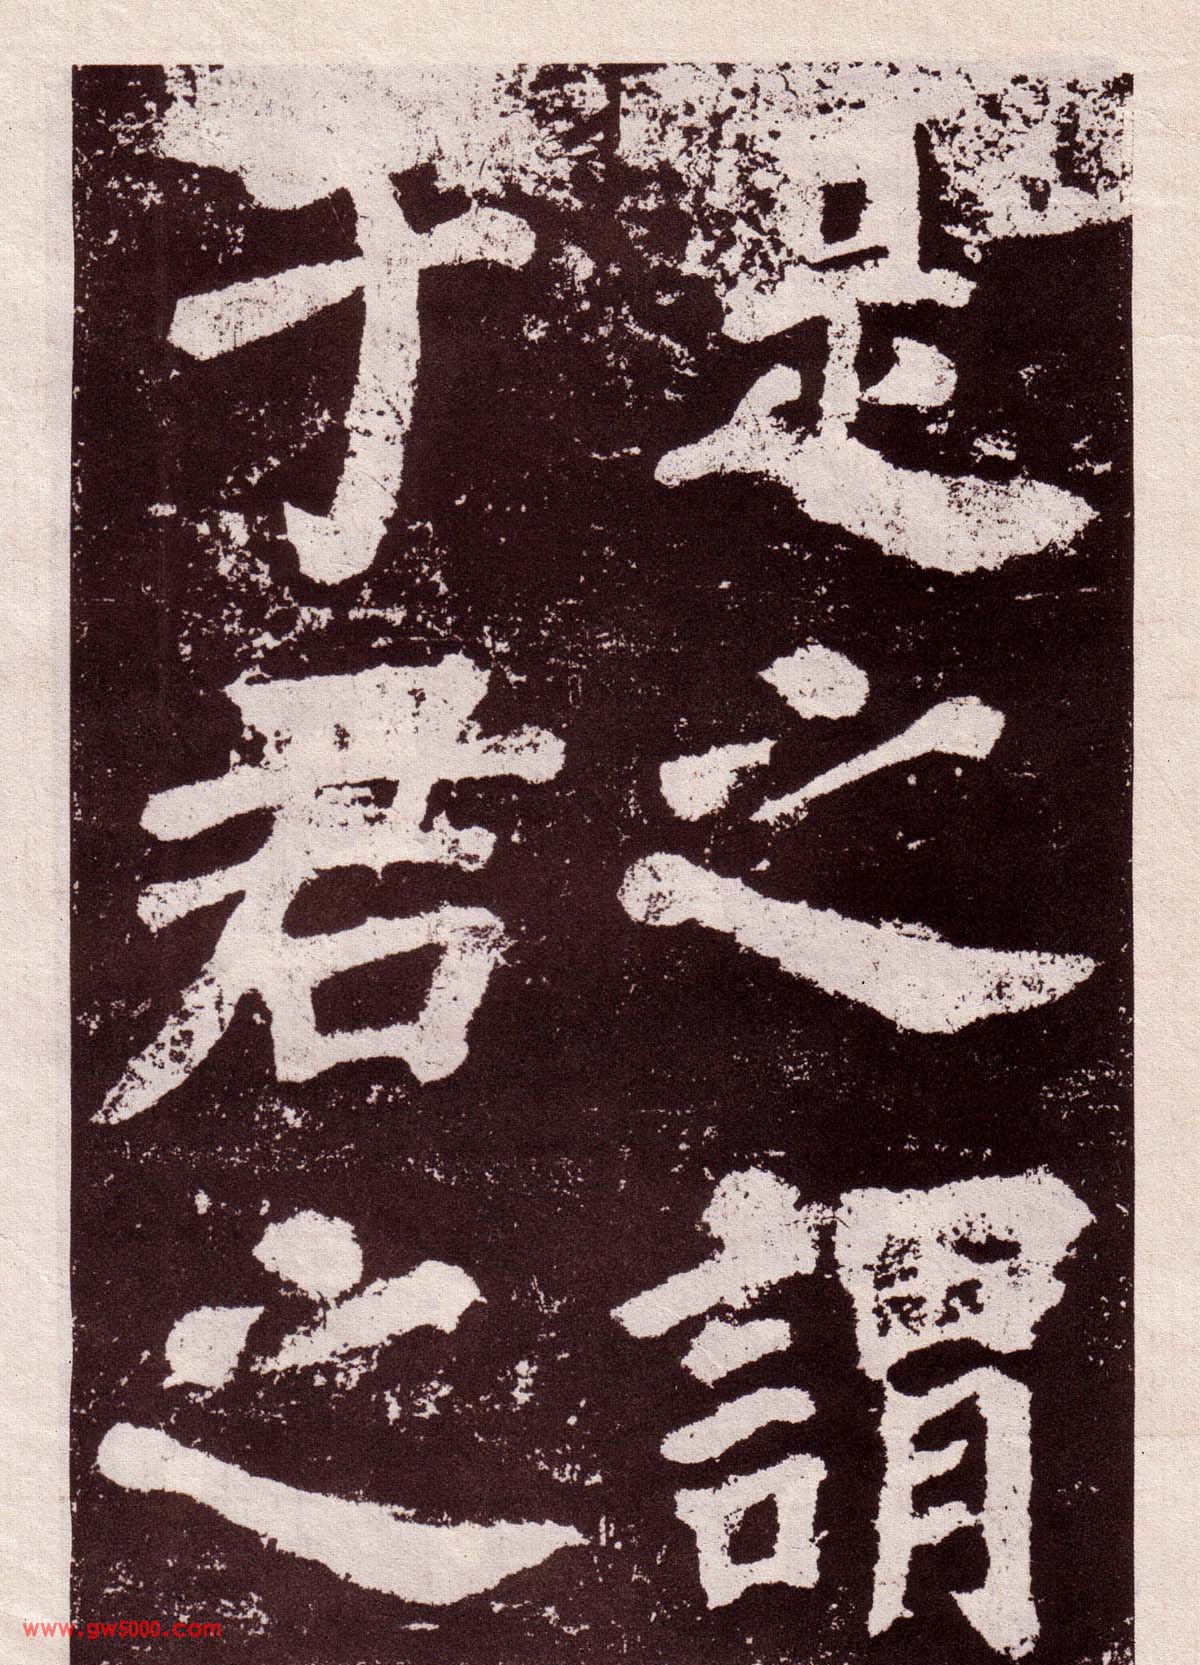 是之謂
乎君之
www.gw5000.com